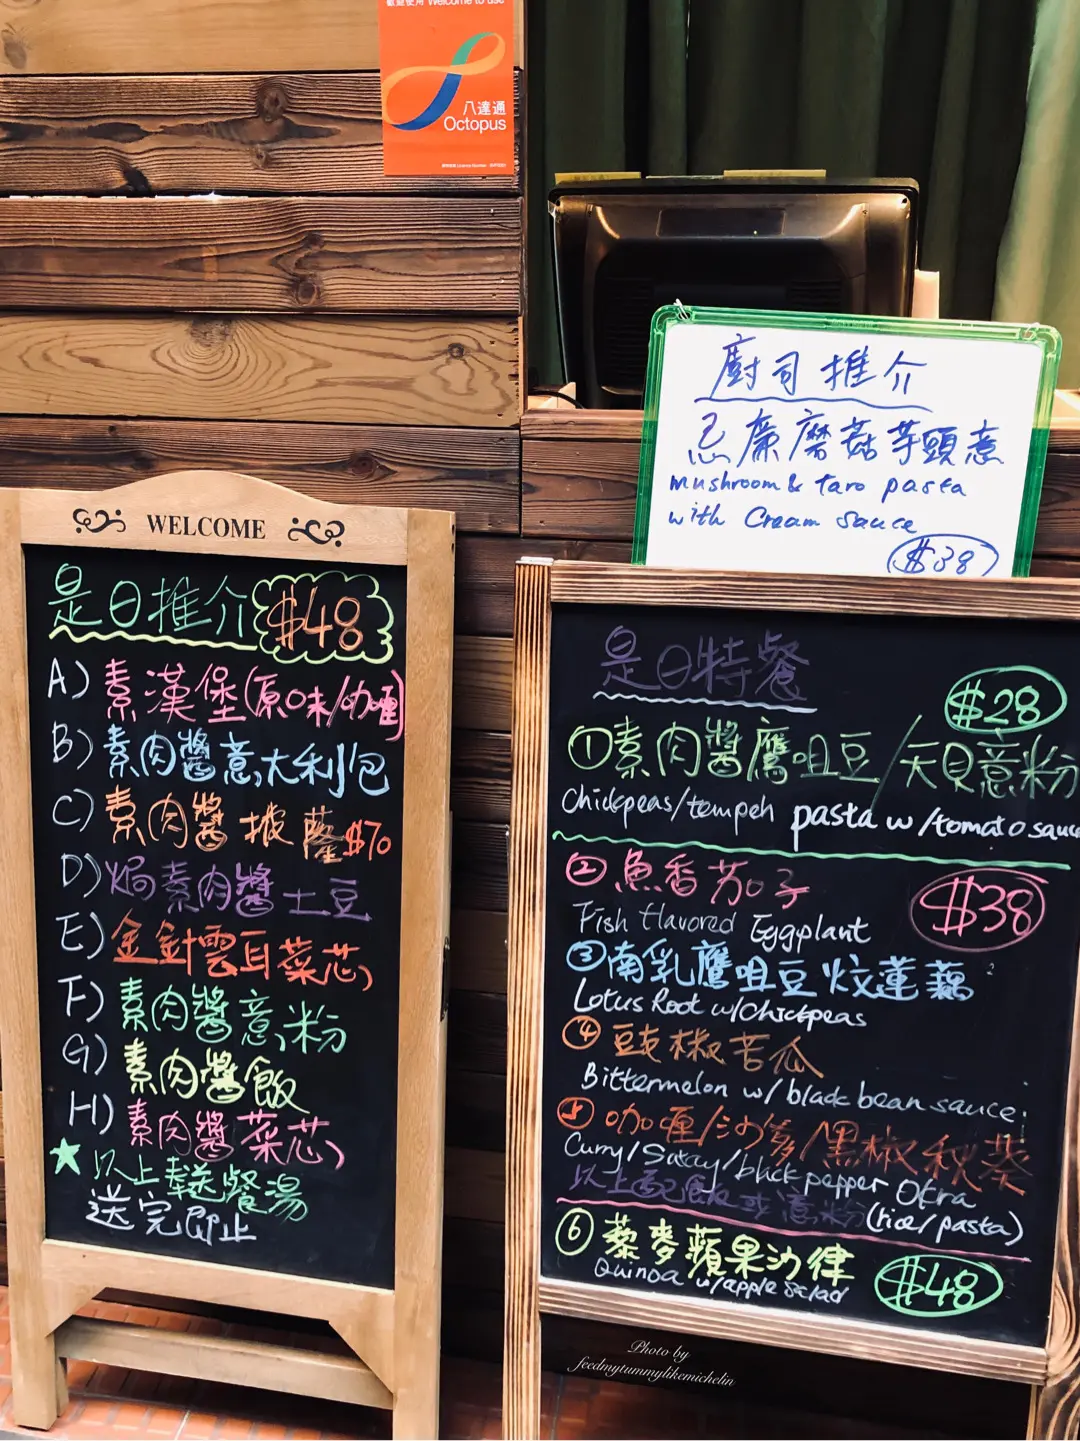 歡迎使用 Welcome to use
八達通
Octopus
廚司推介
忌廉磨菇芋頭意
mushroom & taro pasta
with Cream sauce
$38
WELCOME
是日推介 $48
A) 素漢堡(原味/咖喱)
B) 素肉醬意大利包
C) 素肉醬披薩 $70
D) 焗素肉醬土豆
E) 金針雲耳菜芯
F) 素肉醬意粉
G) 素肉醬飯
H) 素肉醬菜芯
★以上奉送餐湯
送完即止
是日特餐
$28
①素肉醬鷹咀豆/天貝意粉
Chickpeas/tempeh pasta w/tomato sauce
②魚香茄子 $38
Fish flavored Eggplant
③南乳鷹咀豆炆蓮藕
Lotus Root w/Chickpeas
④豉椒苦瓜
Bittermelon w/ black bean sauce
⑤咖喱/沙爹/黑椒秋葵
Curry/Satay/black pepper Okra
以上配飯或意粉(rice/pasta)
⑥藜麥蘋果沙律
Quinoa w/apple salad $48
Photo by
feedmytummylikemichelin